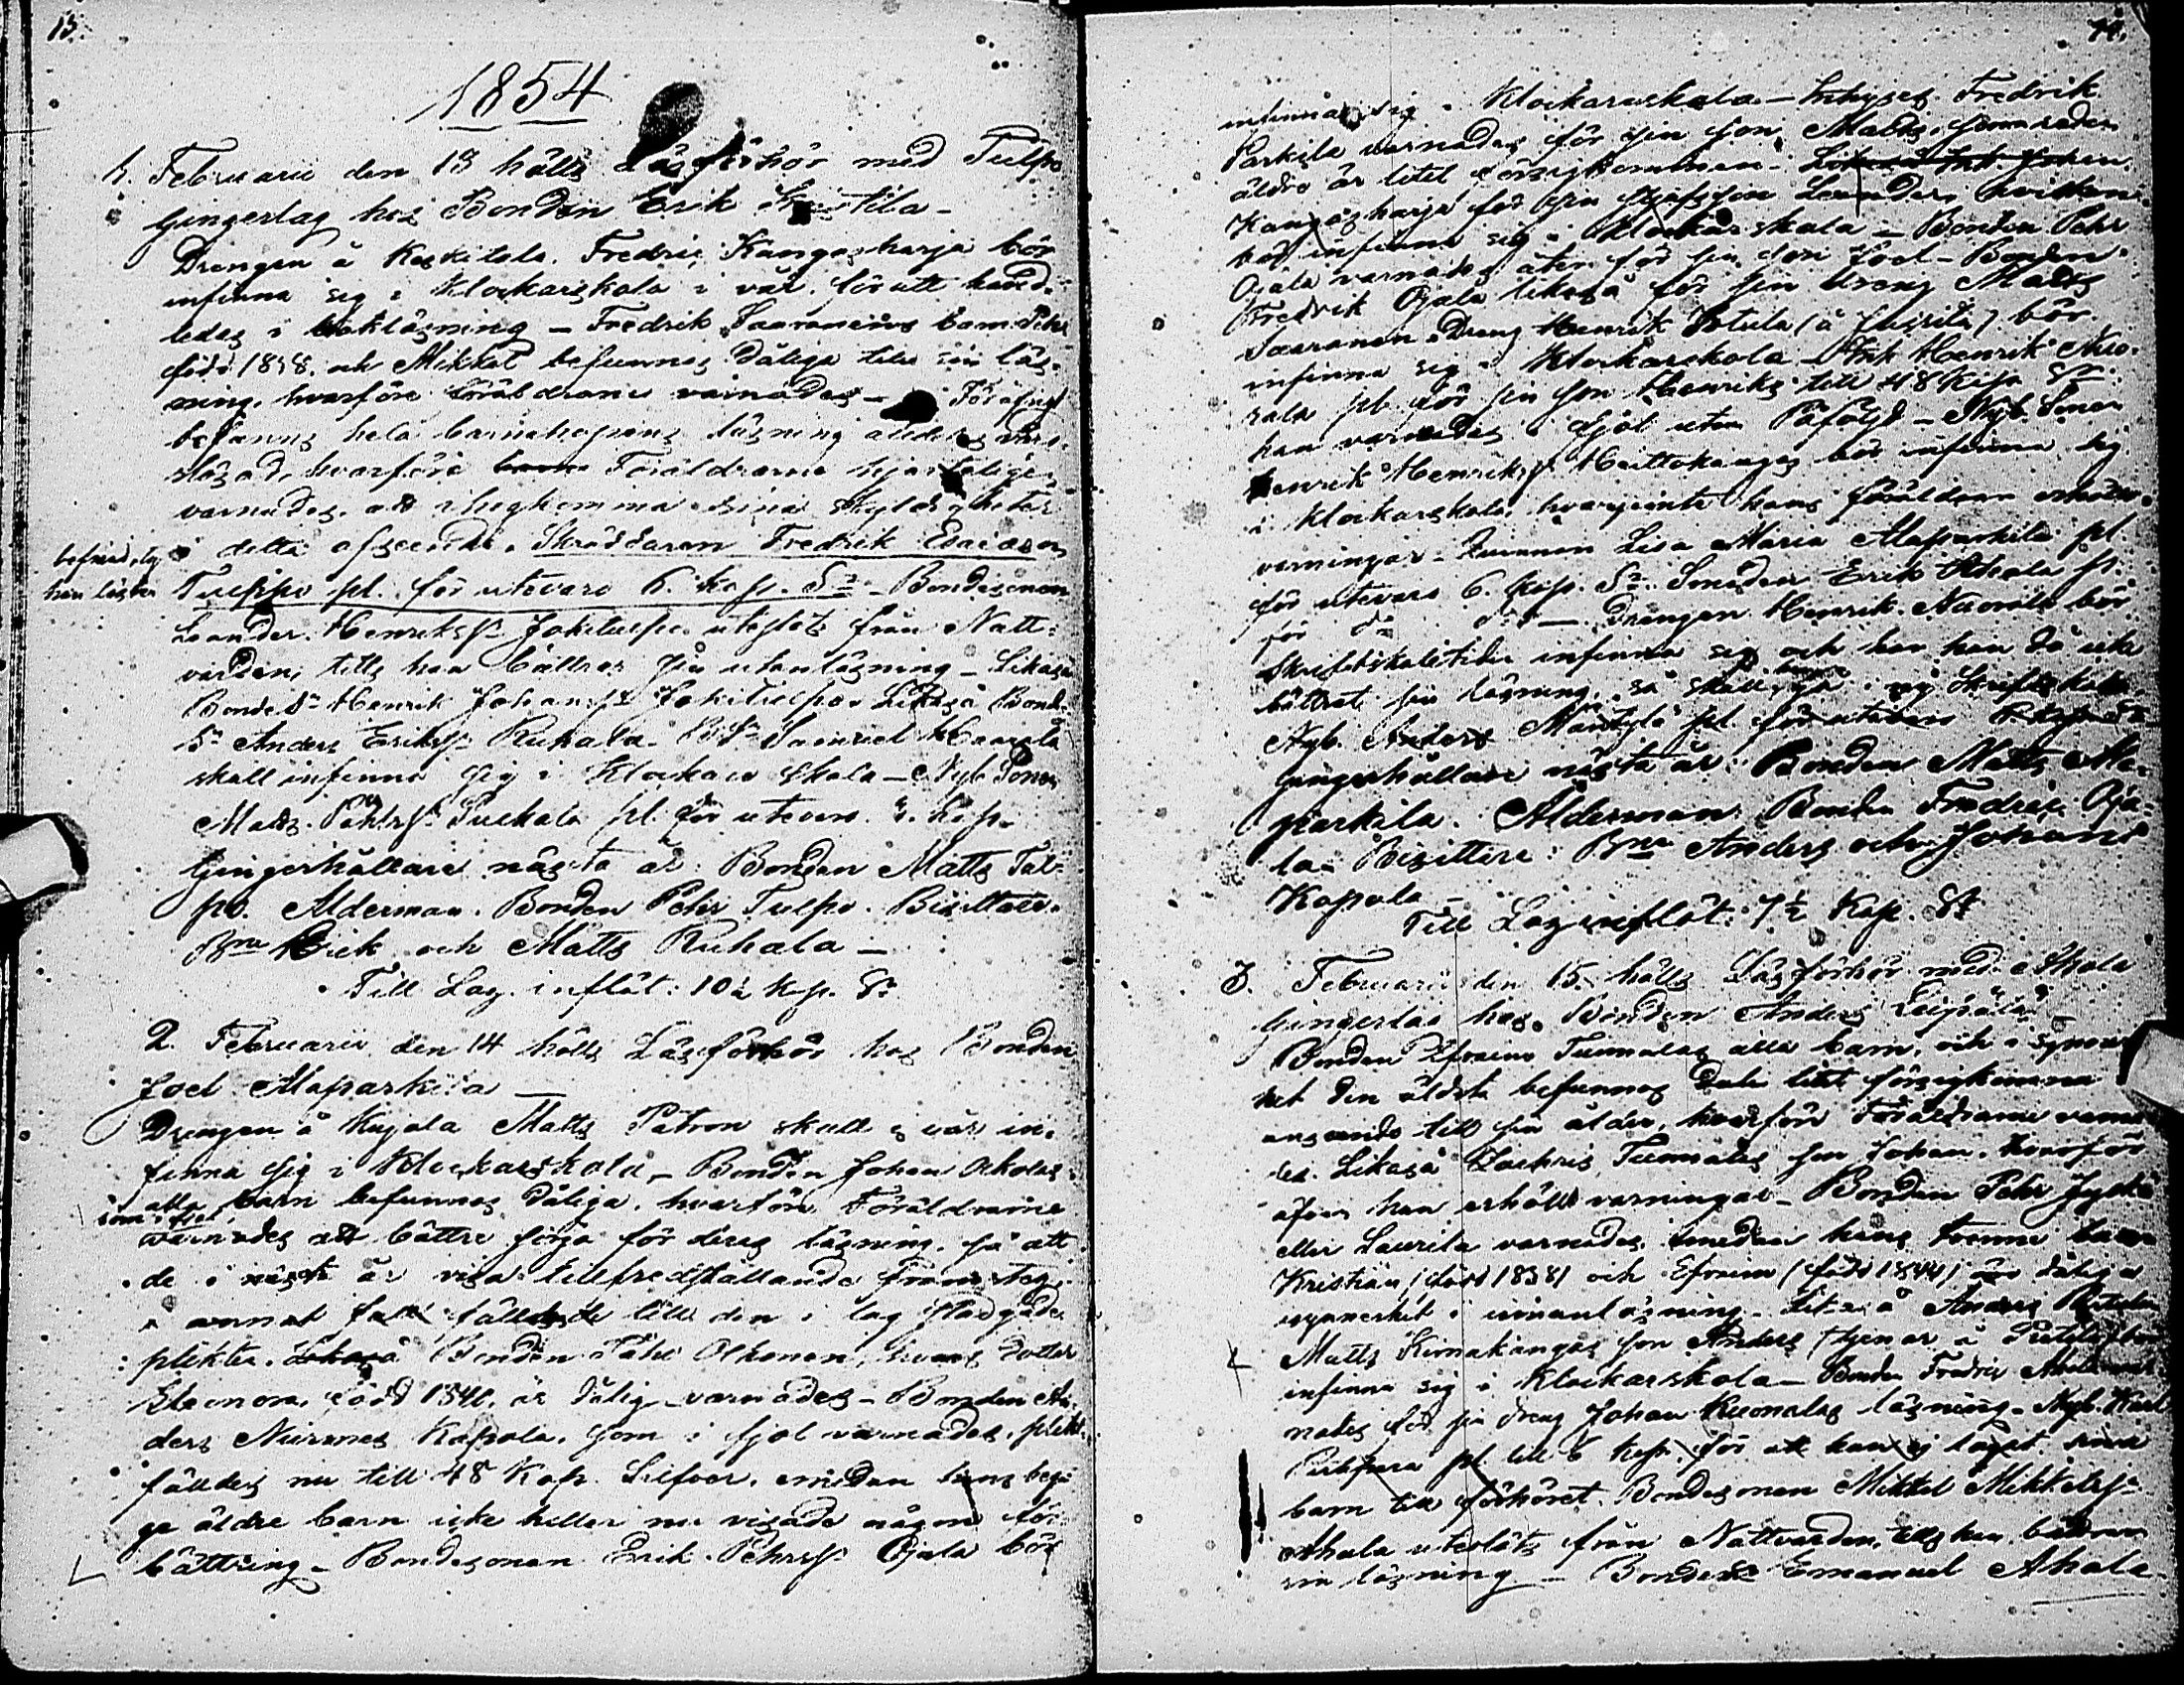 13.
1854
1. Februarii den 13 hölls Läsförhör med Tulpo
Gingerlag hos Bonden Erik
Drengen å Keskitalo. Fredric Kangasharja bör
infinna sig i Klockarskola i vår, för att hand-
ledas i Boklösning – Fredrik Saaranens barn Pehr
född 1838. och Mikkel befunnos dåliga till sin läs-
ning. hvarföre föräldrarne varnades –
befanns hela barnahopens läsning alldeles
hvarföre Föräldrarne hjerteligen
varnades, att ihogkomma sina skyldigheter
i detta afseende. Skräddaren Fredrik Esaiasson
han läste
Tulppo pl. för utevaro 6. kop. Sr – Bondesonen
Leander Henrikss. Jokitulpo uteslöts från Natt-
varden, tills han bättrar sin utanläsning – Likaså
Bondes. Henrik Johanss. Jokitulpo. Likaså Bond.
Sn Anders Erikss. Ruhala.
skall infinna sig i Klockare skola – Nyb. Sonen
Matts Pährss. Puckala pl. för utevaro 6. kop.
Gingerhållare nästa år. Bonden Matts Tul-
po. Ålderman. Bonden Pehr Tulpo. Bisittare.
Bne Erik och Matts Ruhala –
Till Lag. inflöt: 10½ kop. Sr
2. Februarii den 14 hölls Läsförhör hos Bonden
Joel Maparkila –
Drengen å Kujala Matts Patron skall i vår in-
finna sig i Klockarskola – Bonden Johan
alla barn befunnos dåliga, hvarföre Föräldrarne
varnades att bättre sörja för deras läsning. så att
de i nästa år visa tillfredsställande framsteg
i annat fall fälldes till den i lag stadgade
plikten. Likaså Bonden Påhr Olkonen, hvars dotter
Eleonora, född 1840, är dålig, varnades – Bonden An-
ders Niirnes Kapola. som i fjol varnades, plikt-
fälldes nu till 48 Kop. Silfver, emedan hans begge
äldre barn icke heller nu visade någon för-
bättring – Bondesonen Erik Pehrss. Ojala bör
14.
infinna sig i Klockareskola – Inhyses Fredrik
Parkila varnades för sin son Matts, som redan
äldre är litet försigkommen.
Kangasharja för sin styfson Leander, hvilken
bör infinna sig i Klockarskola – Bonden Pehr
Ojala varnades åter för sin son Joel – Bonden
Fredrik Ojala likaså för sin dreng Matts
Saaranen. Dreng Henrik Intula (å Jussila) bör
infinna sig i Klockarskola – Inh. Henrik
pl. för sin son Henriks till 48 Kop. Sr.
han varnades i fjol utan Påföljd – Nyb. Sonen
Henrik Henrikss. Heittokangas bör infinna sig
i Klockarskola, hvarjemte hans föräldrar erhöllo
varningar – Qvinnan Lisa Maria Maparkila pl.
för utevaro 6. kop. Sr. Smeden Erik Ahola pl.
för do do – Drengen Henrik Nuorala bör
Skriftskoletiden infinna sig och har han då icke
bättrat sin läsning, så skall han ej gå i Skriftskola.
Nyb. Anders Mäntylä pl. för utevaro
Gingerhållare nästa år: Bonden Matts Ma-
parkila. Ålderman Bonden Fredric Oja-
la. Bisittare: Bne Anders och Johan
Kapola –
Till Lag inflöt: 7½ Kop. Sr
3. Februarii den 15. hölls Läsförhör med Ahola
Gingerlag hos Bonden Anders
Bonden Efraims Tunnalas alla barn, och i synner-
het den äldste befunnos dåli litet försigkomna
anseende till sin ålder, hvarför Föräldrarne varna-
des. Likaså Zachris Tunnalas son Johan. hvarför
äfven han erhöll varningar – Bonden Pehr
eller Laurila varnades emedan hans tvenne barn
Kristian (född 1838) och Efraim (född 1844) äro dåliga
synnerhet i innanläsning. Likaså Anders
Matts Kiimakangas son Anders (tjenar å
infinna sig i Klockarskola – Bonden Fredric Ahola var-
nades för sin dreng Johan Kuonalas läsning – Nyb. Karl
pl. till 6 kop. för att han ej låtit sina
barn till förhöret. Bondesonen Mikkel Mikkelss.
Ahola uteslöts från Nattvarden, tills han bättrar
sin läsning – Bondes. Emanuel Ahola